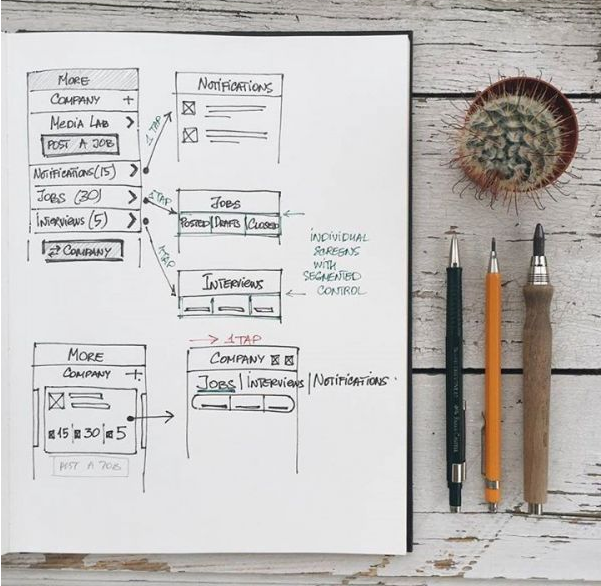 MORE
COMPANY +
MEDIA LAB >
POST A JOB
NOTIFICATIONS (15) >
JOBS (30) >
INTERVIEWS (5) >
⇄ COMPANY
1 TAP
1 TAP
1 TAP
NOTIFICATIONS
JOBS
POSTED | DRAFTS | CLOSED
INTERVIEWS
INDIVIDUAL
SCREENS
WITH
SEGMENTED
CONTROL
MORE
COMPANY +
15 30 5
POST A JOB
1 TAP
COMPANY
JOBS | INTERVIEWS | NOTIFICATIONS